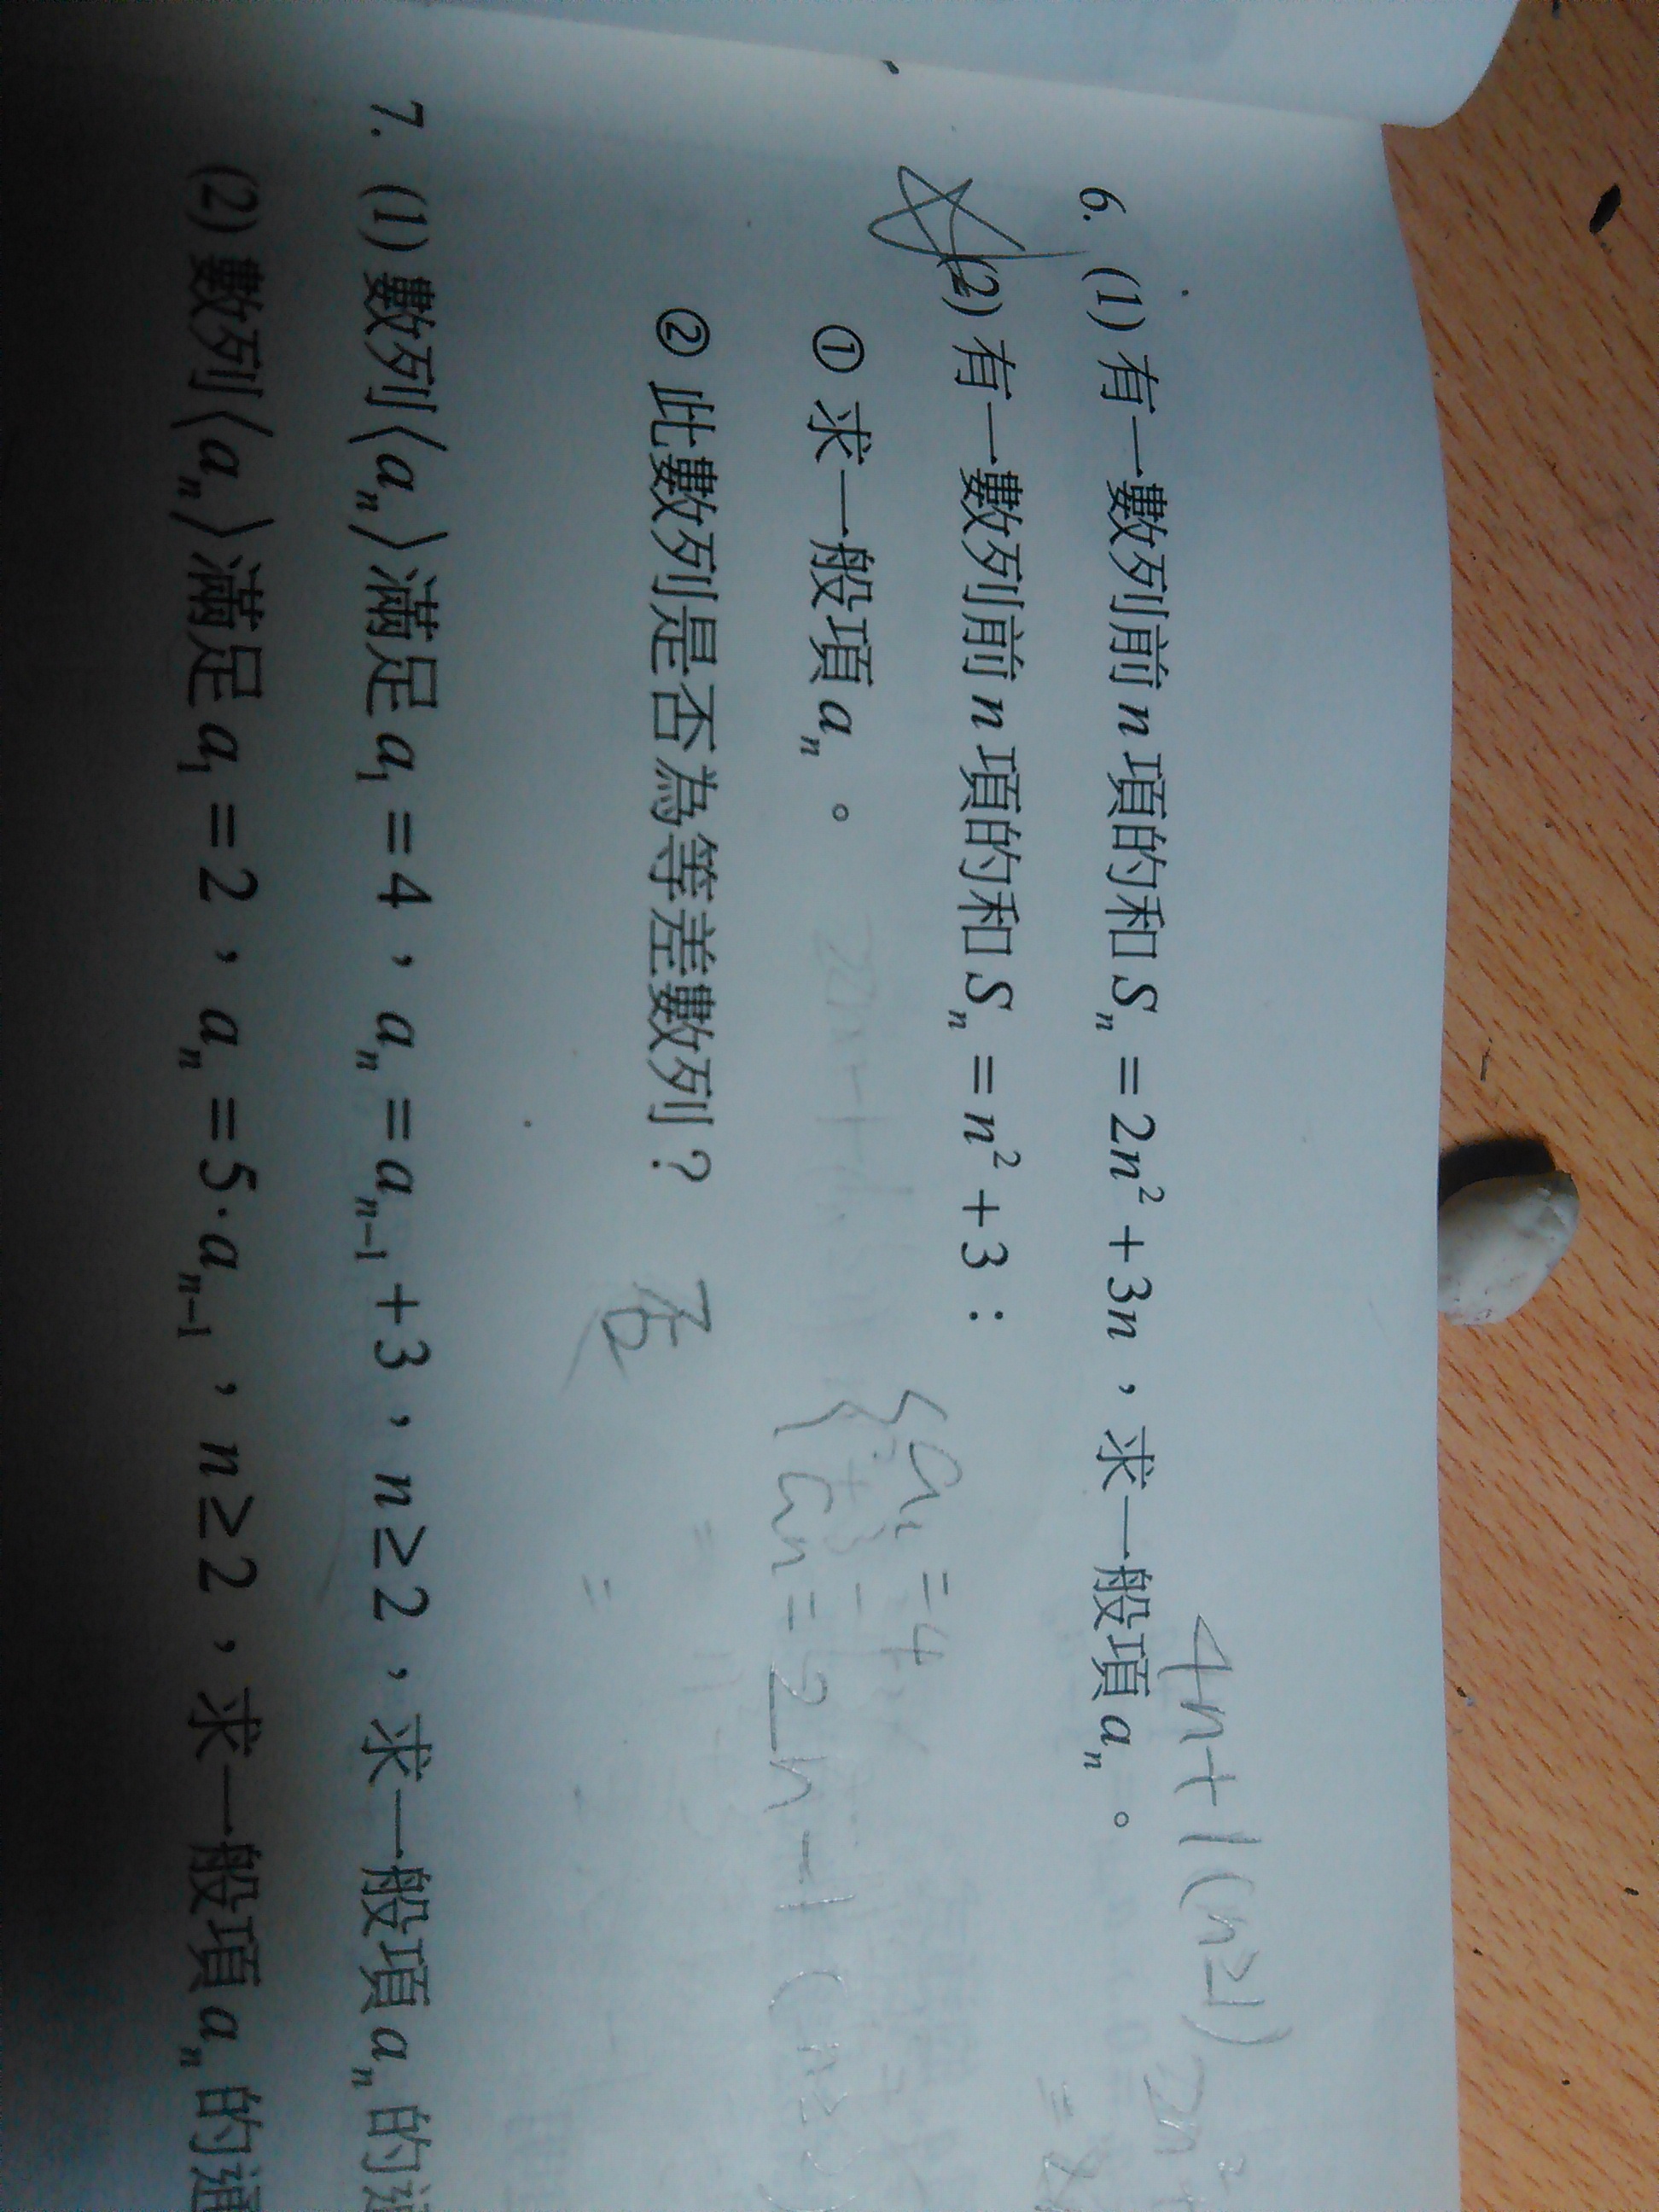 4n+1(n≥1)
6. (1) 有一數列前 n 項的和 Sₙ = 2n² + 3n，求一般項 aₙ。
(2) 有一數列前 n 項的和 Sₙ = n² + 3：
a₁ = 4
① 求一般項 aₙ。
aₙ = 2n-1 (n≥2)
② 此數列是否為等差數列？ 否
7. (1) 數列⟨aₙ⟩滿足 a₁ = 4，aₙ = aₙ₋₁ + 3，n ≥ 2，求一般項 aₙ 的
(2) 數列⟨aₙ⟩滿足 a₁ = 2，aₙ = 5·aₙ₋₁，n ≥ 2，求一般項 aₙ 的通